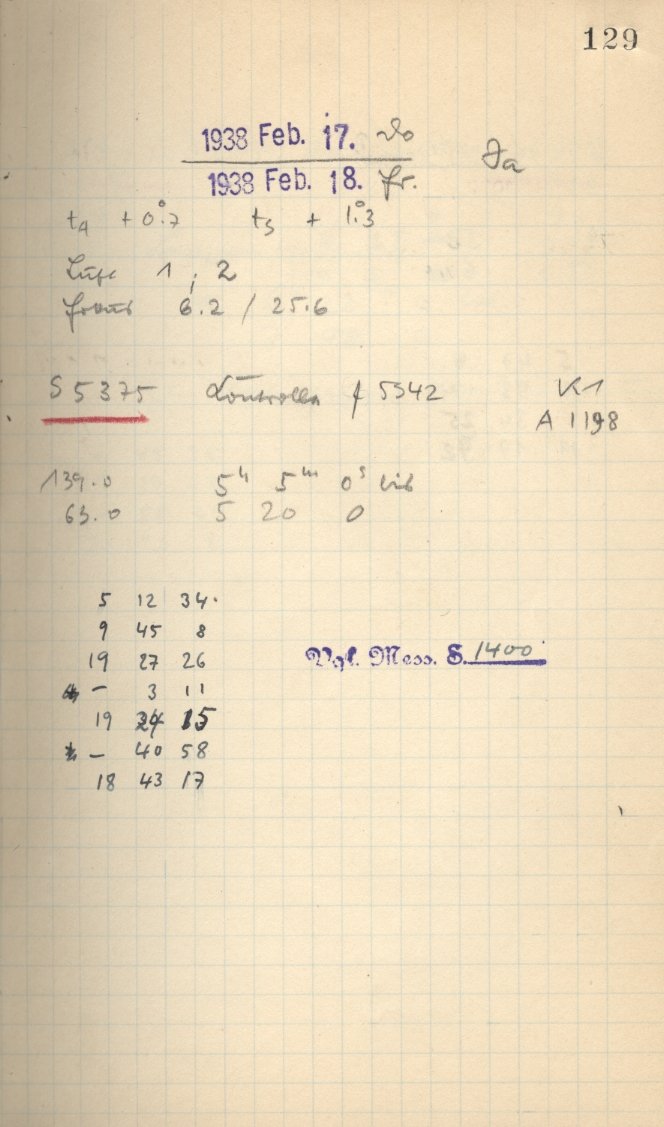 129
1938 Feb. 17. Do
1938 Feb. 18. Fr. Ja
ta + 0°.7 ts + 1°.3
Luft 1 ; 2
Fokus 6.2 / 25.6
S 5375 Kontrolle f 5542 K1
A 1198
139.0 5h 5m 0s bis
63.0 5 20 0
5 12 34.
9 45 8
19 27 26
- 3 11
19 24 15
- 40 58
18 43 17
Vgl. Mess. S. 1400